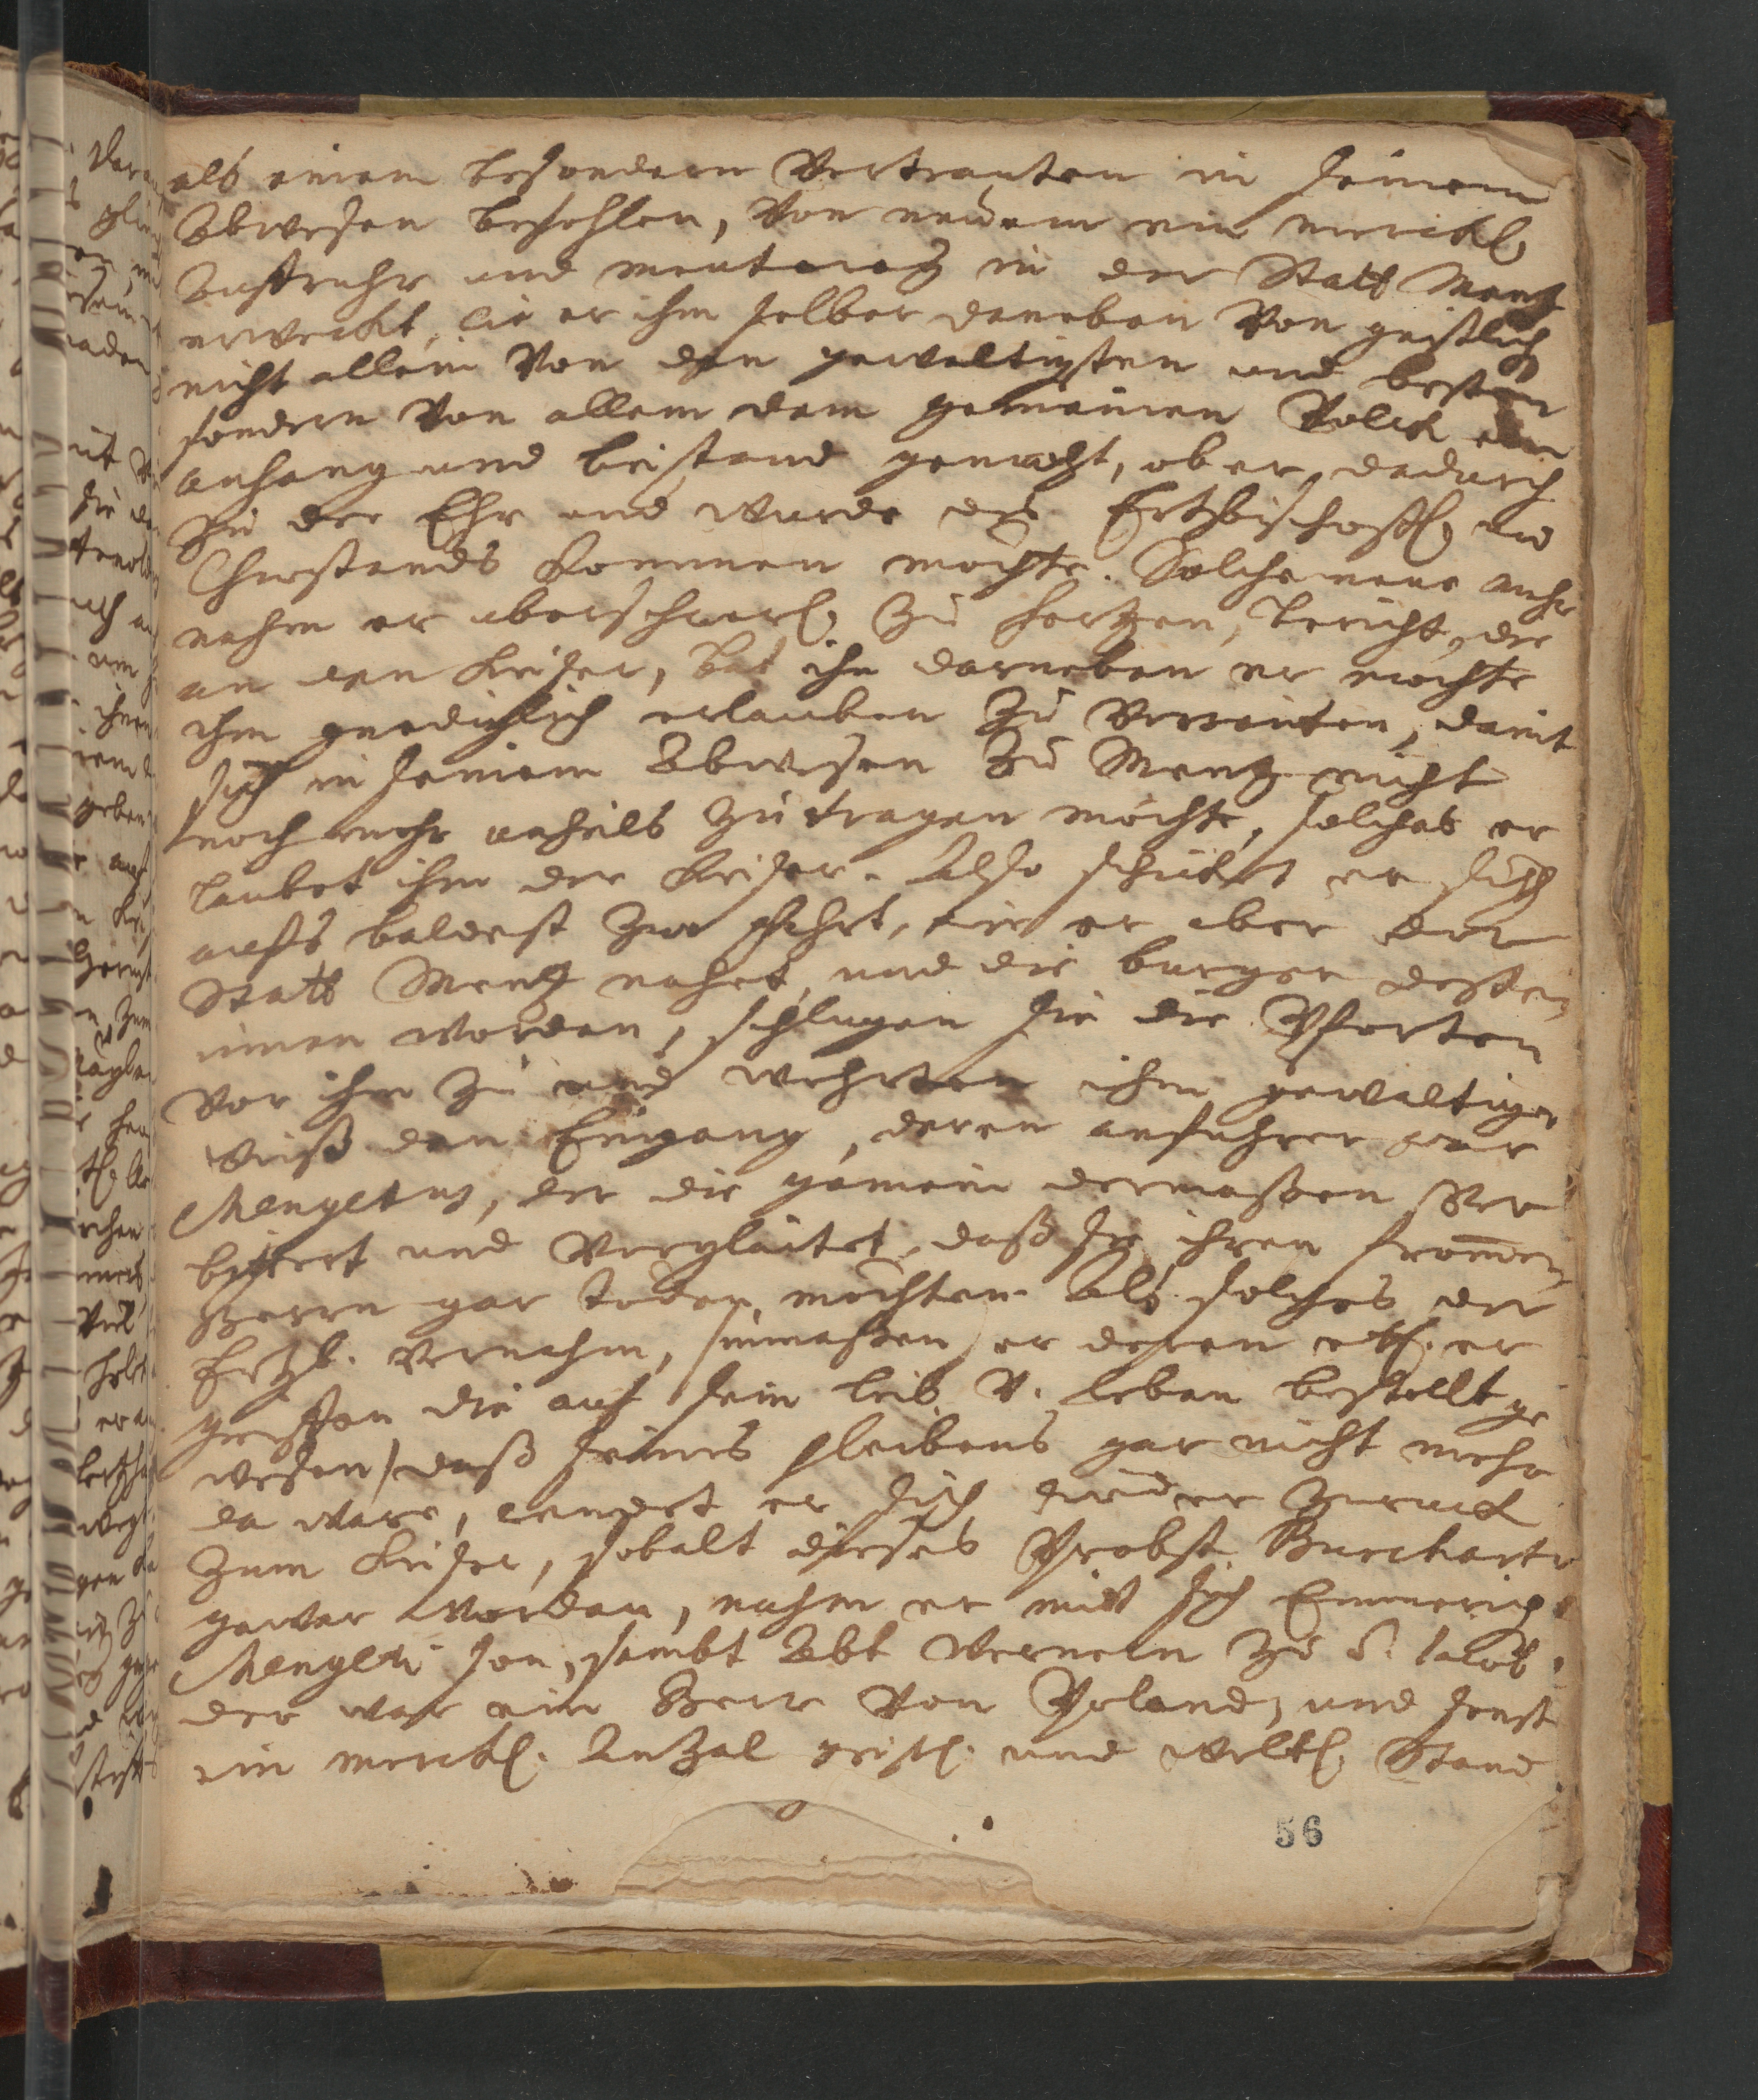 als einem besondern Vertrauten in seinem
Abwesen befohlen, von neuem ein merckl.
Auffruhr und meuterey in der Statt Mentz
erweckt, die er ihm selber daneben von geistlich
nicht allein von den gewaltigsten und besten
sondern von allem dem gemeinen Volck
anhang und beistand gemacht, ob er dadurch
zu der Ehr und wurde des Ertzbischoffl. und
Churstands kommen mochte. Solche neue auffr
nahm er uberschwerl. zu hertzen, bericht, die
an den Keiser, bat ihn darneben er mochte
ihm gnedichlich erlauben zu verreiten, damit
sich in seinem Abwesen zu Mentz nicht
noch mehr unheils zutragen möchte, solches er
laubet ihm der Keiser. Also schicket er sich
auffs baldest zur fahrt, wie er aber der
Statt Mentz nahet, und die burger dessen
innen worden, schlugen sie die Pforten
vor ihm zu und wehrten ihm gewaltiger
weiß den Eingang, deren anfuhrer war
Mengotus, der die gemein dermaßen ver
bittert und vergläitet, daß sie ihren frommen
Herrn gar töden möchten. Als solches der
Ertzb. vernahm, (inmaßen er deren etl. er
griffen die auf sein leib v. leben bestellt ge
wesen) daß seines pleibens gar nicht mehr
da ware, wendet er sich wieder zuruck
zum Keiser, sobalt dieses Probst Burckart
gewar worden, nahm er mit sich Emmerich
Mengoti son, sambt Abt Wernern zu S. Jacob,
der war ein Herr von Poland, und sonst
ein merckl. Anzal geistl. und weltl. Stand
56